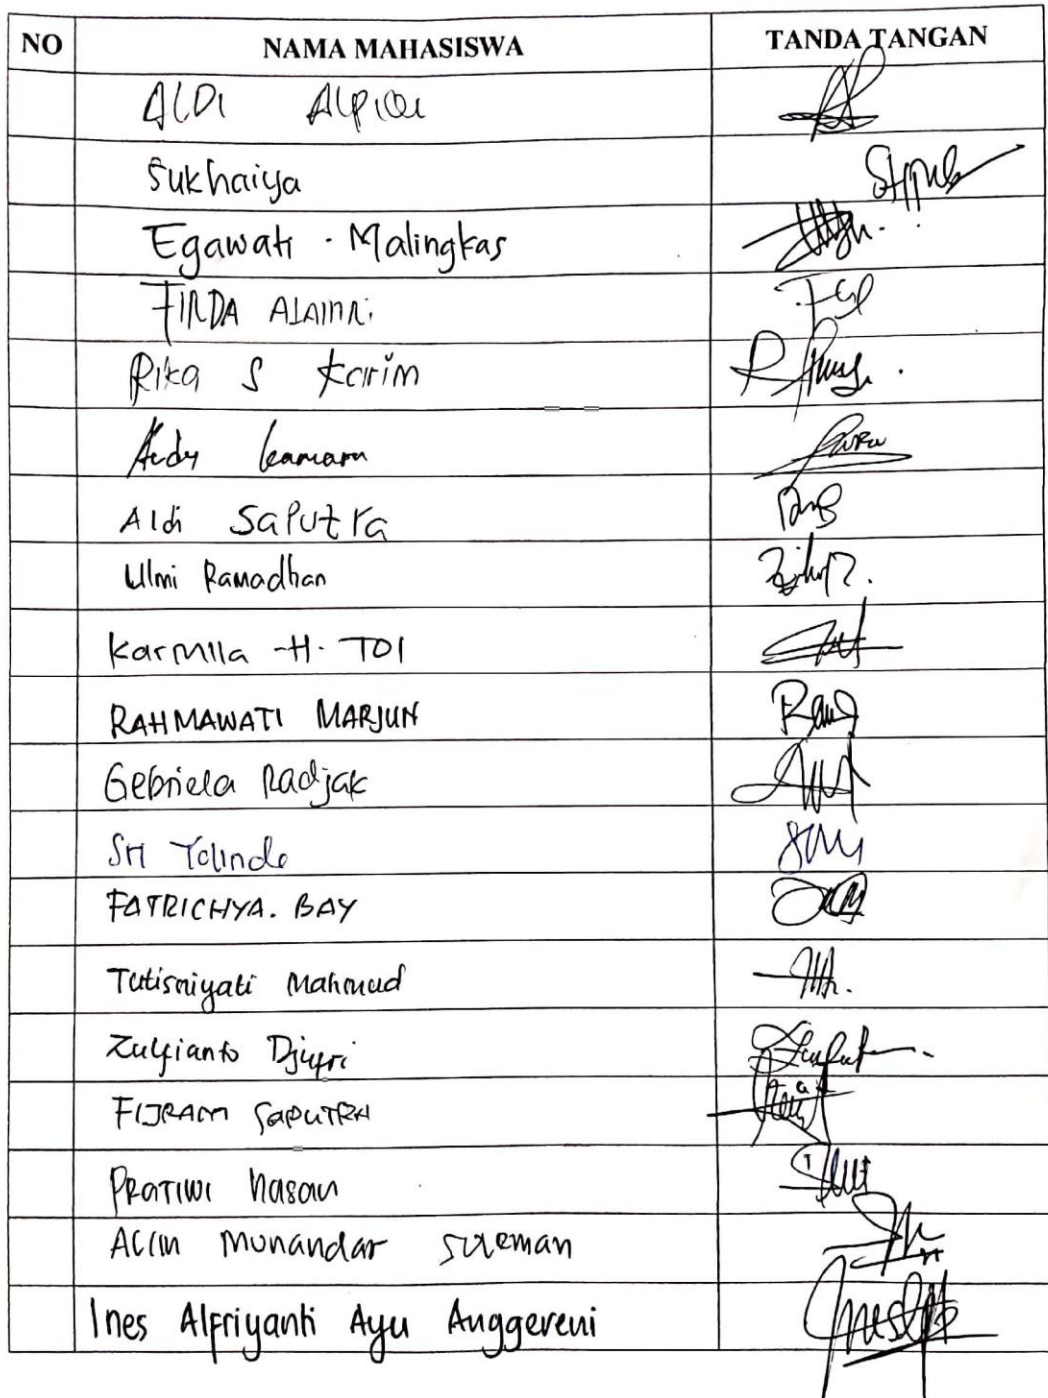 NO NAMA MAHASISWA TANDA TANGAN
ALDI
Sukhaiya
Egawati . Malingkas
FIRDA ALAMRI
Rika S Karim
Andy kamaru
Aldi SaPutra
Ulmi Ramadhan
Karmila -H. TOI
RAHMAWATI MARJUN
Gebriela Radjak
Sri Yolinda
FATRICHYA. BAY
Tutisniyati Mahmud
Zulfianto Djufri
FIJRAM SAPUTRA
PRATIWI Hasan
Munandar
Ines Alfriyanti Ayu Anggereni